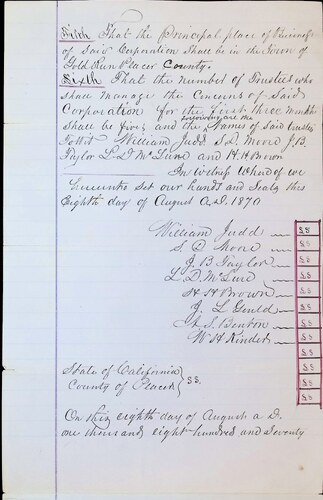 Fifth That the Principal place of Business
of Said Corporation Shall be in the Town of
Gold Run Placer County.
Sixth That the number of Trustees who
shall manage the Concerns of Said
Corporation for the first three months
Shall be five, and the Names of Said Trustees
are
to wit William Judd S. D. Moore J. B.
Taylor L. D. McLure and H. H. Brown
In witness Whereof we
hereunto set our hands and Seals this
Eighth day of August A.D. 1870
William Judd SS
S D Moore SS
J. B Taylor SS
L. D. McLure SS
H H Brown SS
J. L Gould SS
S. Benton SS
W H Kinder SS
SS
SS
SS
State of California
County of Placer } SS.
On this eighth day of August a D.
one thousand eight hundred and seventy